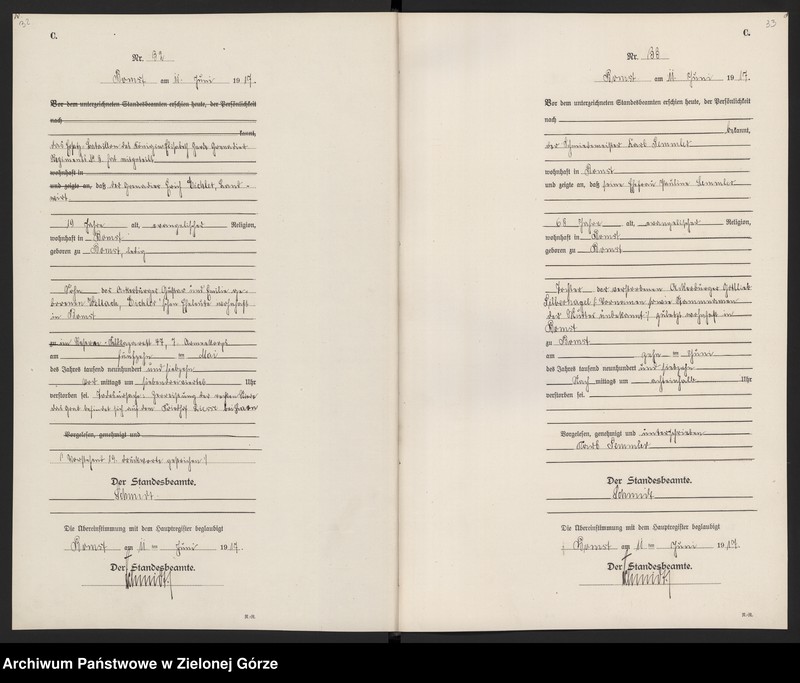 32
C.
Nr. 32
Bomst am 11. Juni 1917.
Vor dem unterzeichneten Standesbeamten erschien heute, der Persönlichkeit
nach
kannt,
das Ersatz-Bataillon des Königin Elisabeth Garde Grenadier
Regiments № 3 hat mitgeteilt
wohnhaft in
und zeigte an, daß der Grenadier Erich Eichler, Land-
wirt
19 Jahre alt, evangelischer Religion,
wohnhaft in Bomst
geboren zu Bomst, ledig
Sohn des Ackerbürger Gustav und Emilie ge-
borenen Eichler'schen Eheleute wohnhaft
in Bomst
zu im Armeekorps
am fünfzehn ten Mai
des Jahres tausend neunhundert und siebzehn
vor mittags um Uhr
verstorben sei. Todesursache: Zerreißung der rechten Niere
das Grab befindet sich auf dem Friedhof
Vorgelesen, genehmigt und
(Vorstehend 19 Druckworte gestrichen)
Der Standesbeamte.
Schmidt
Die Übereinstimmung mit dem Hauptregister beglaubigt
Bomst am 11 ten Juni 1917.
Der Standesbeamte.
Schmidt
33
C.
Nr. 33
Bomst am 11 Juni 1917.
Vor dem unterzeichneten Standesbeamten erschien heute, der Persönlichkeit
nach
bekannt,
der Schmiedemeister Karl Semmler
wohnhaft in Bomst
und zeigte an, daß seine Ehefrau Pauline Semmler
68 Jahre alt, evangelischer Religion,
wohnhaft in Bomst
geboren zu Bomst
Tochter der verstorbenen Ackerbürger Gottlieb
Silberhagel (Vornamen sowie Stammnamen
der Mutter unbekannt) zuletzt wohnhaft in
Bomst
zu Bomst
am zehn ten Juni
des Jahres tausend neunhundert und siebzehn
Nach mittags um achteinhalb Uhr
verstorben sei.
Vorgelesen, genehmigt und unterschrieben
Karl Semmler
Der Standesbeamte.
Schmidt
Die Übereinstimmung mit dem Hauptregister beglaubigt
Bomst am 11 ten Juni 1917.
Der Standesbeamte.
Schmidt
Archiwum Państwowe w Zielonej Górze